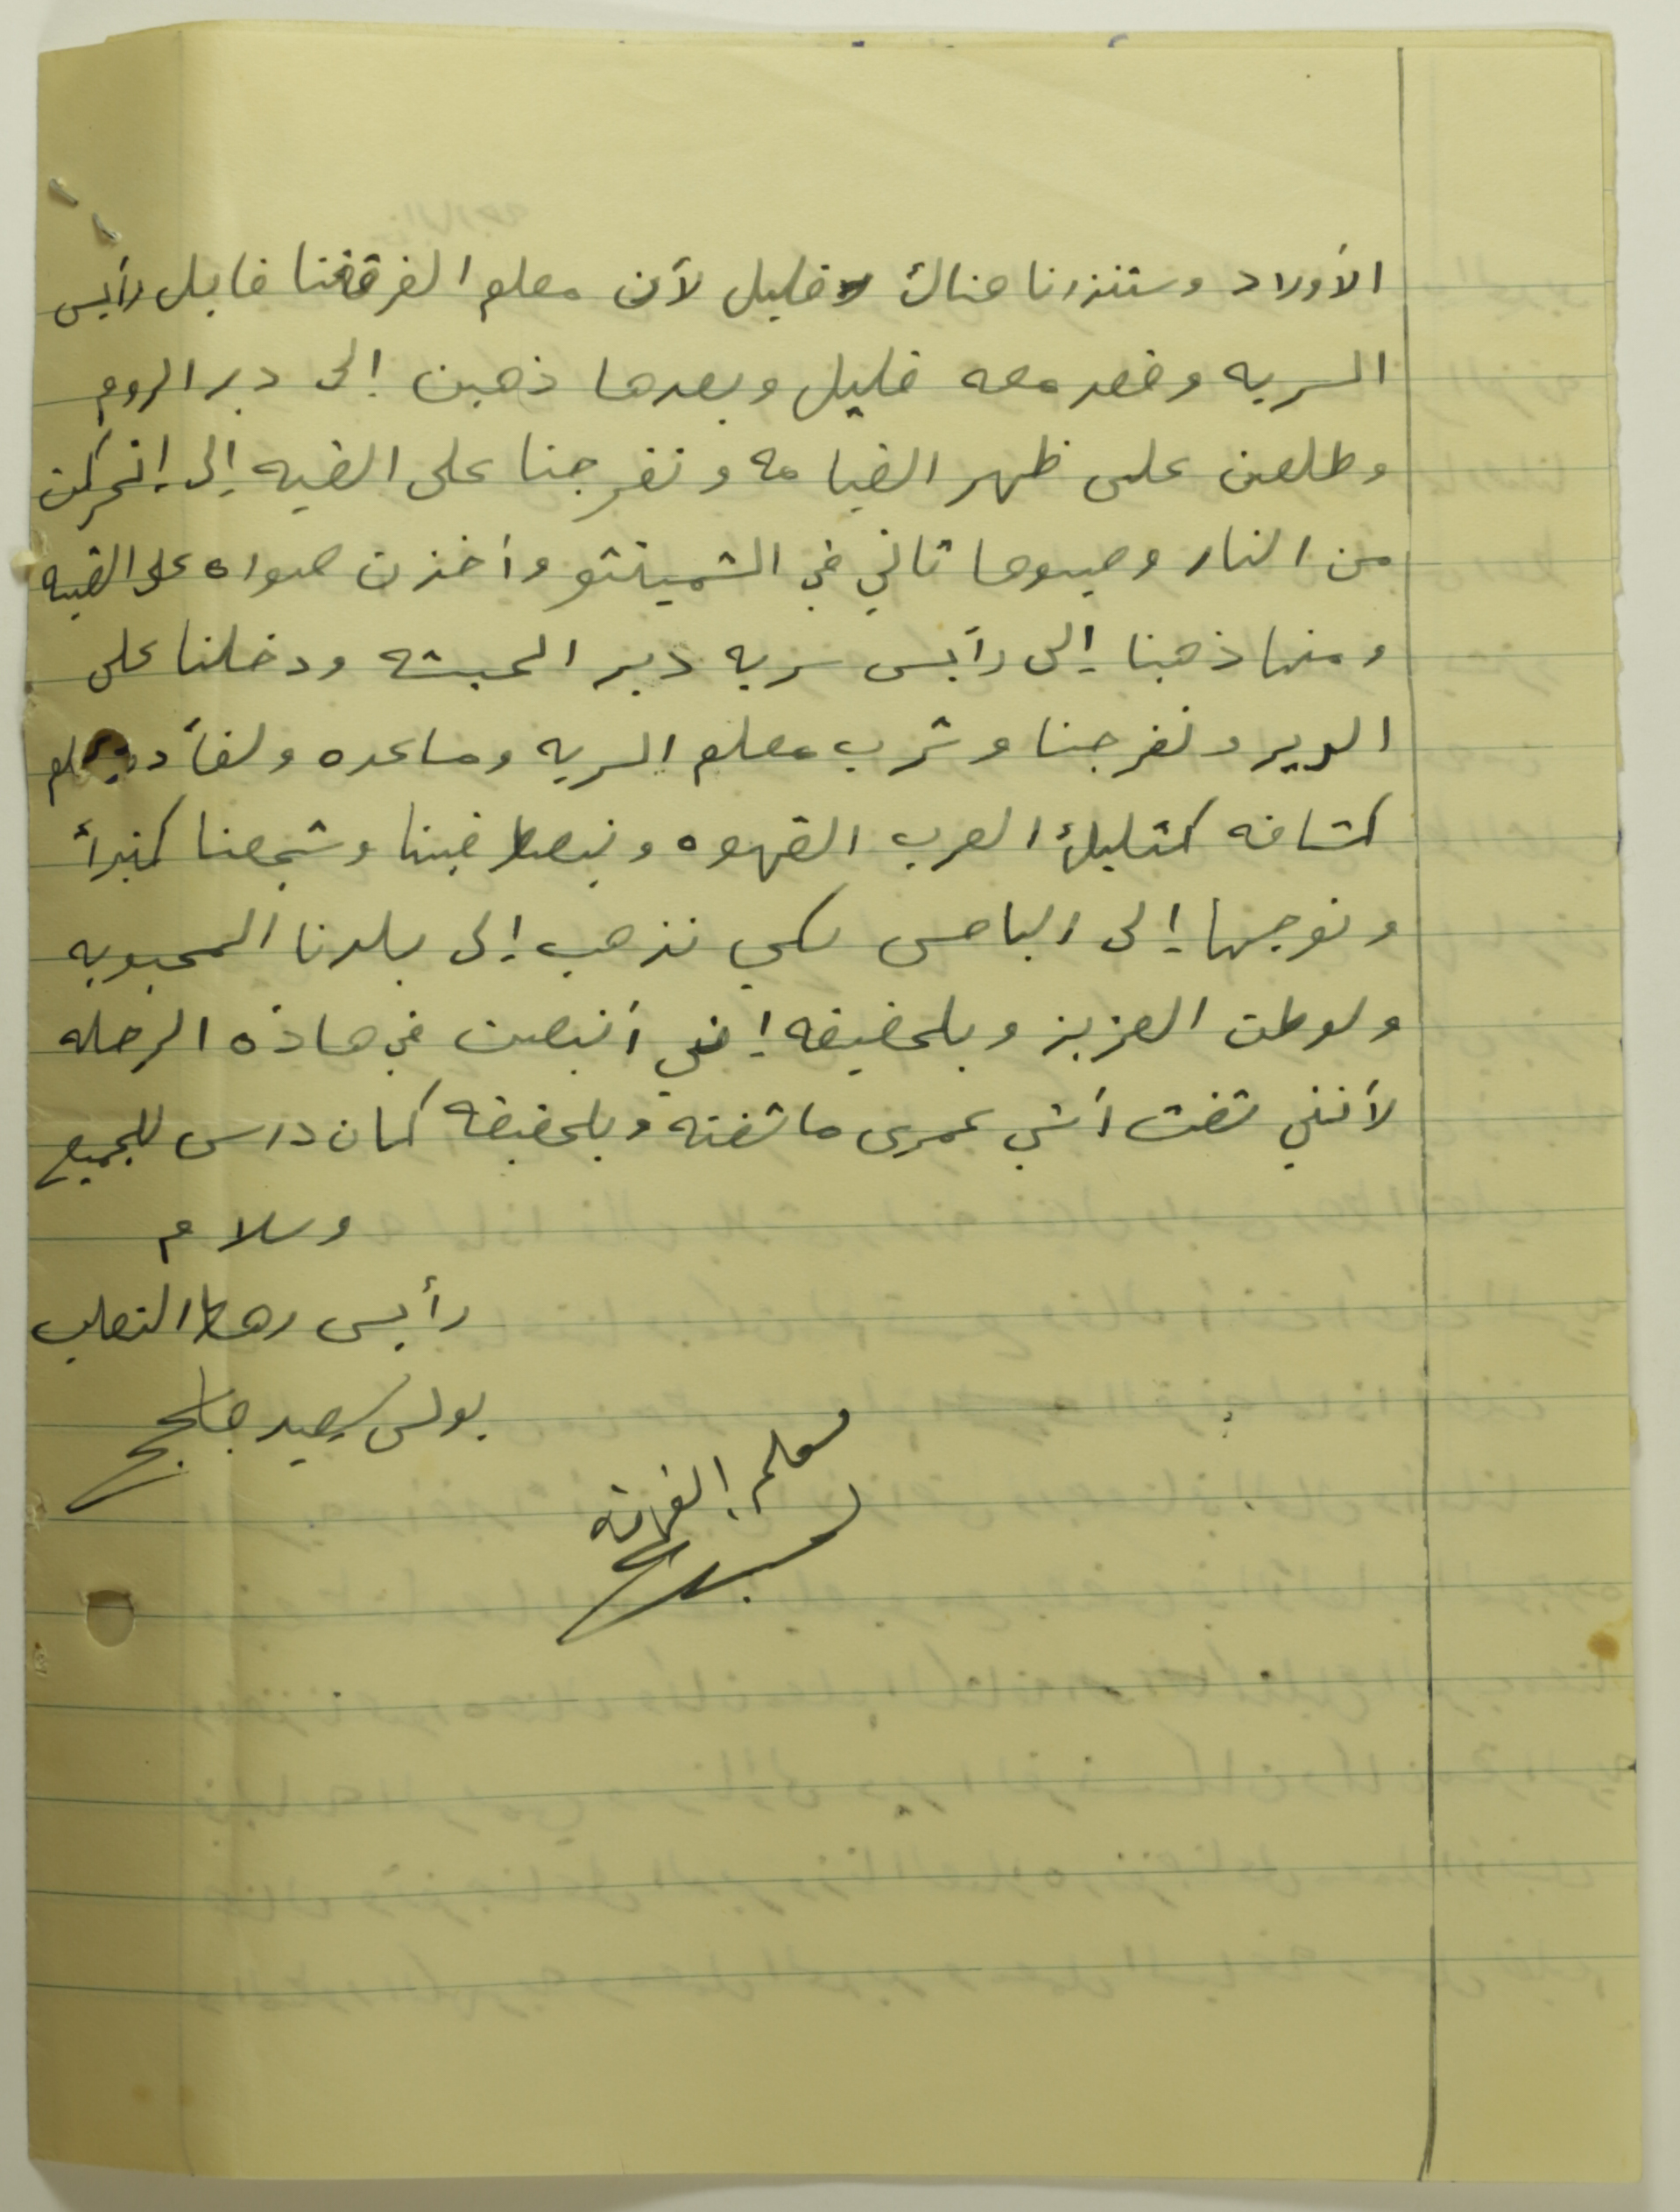 الأولاد وستنزرنا هناك قليل لأن معلم الفرقتنا قابل رأيس
السريه وقعد معه قليل وبعدها ذهبن إلى دير الروم
وطلعن على ظهر القيامه وتفرجنا على القبه إلى إنحركت
من النار وصبوها تاني في الشمينتو وأخذن صواره على القبه
ومنها ذهبنا إلى رأيس سريه دير الحبشه ودخلنا على
الدير وتفرجنا وشرب معلم السريه ومساعده ولقأد
كشافه كتليك العرب القهوه ونبصط فينا وشجعنا كثيرأ
وتوجهنا إلى الباص لكي نذهب إلى بلدنا المحبوبه
ولوطن العزيز وبلحقيقه إنني أنبصت في هاذه الرحله
لأنني شفت أشي عمرى ما شفته وبلحقيقه كمان دارس للجميع
وسلام
رأيس رهط الثعلب
بولس سعيد
معلم الفرقة